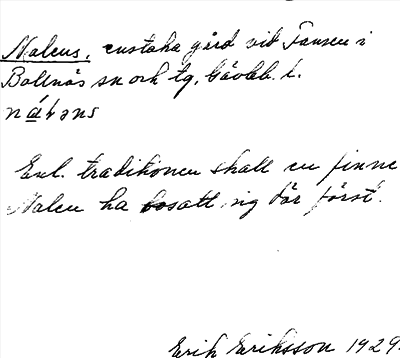 Nalens, enstaka gård vid Tansen i
Bollnäs sn och tg, Gävleb. l.
Enl. traditionen skall en finne
Nalen ha bosatt sig där först.
Erik Eriksson 1929.